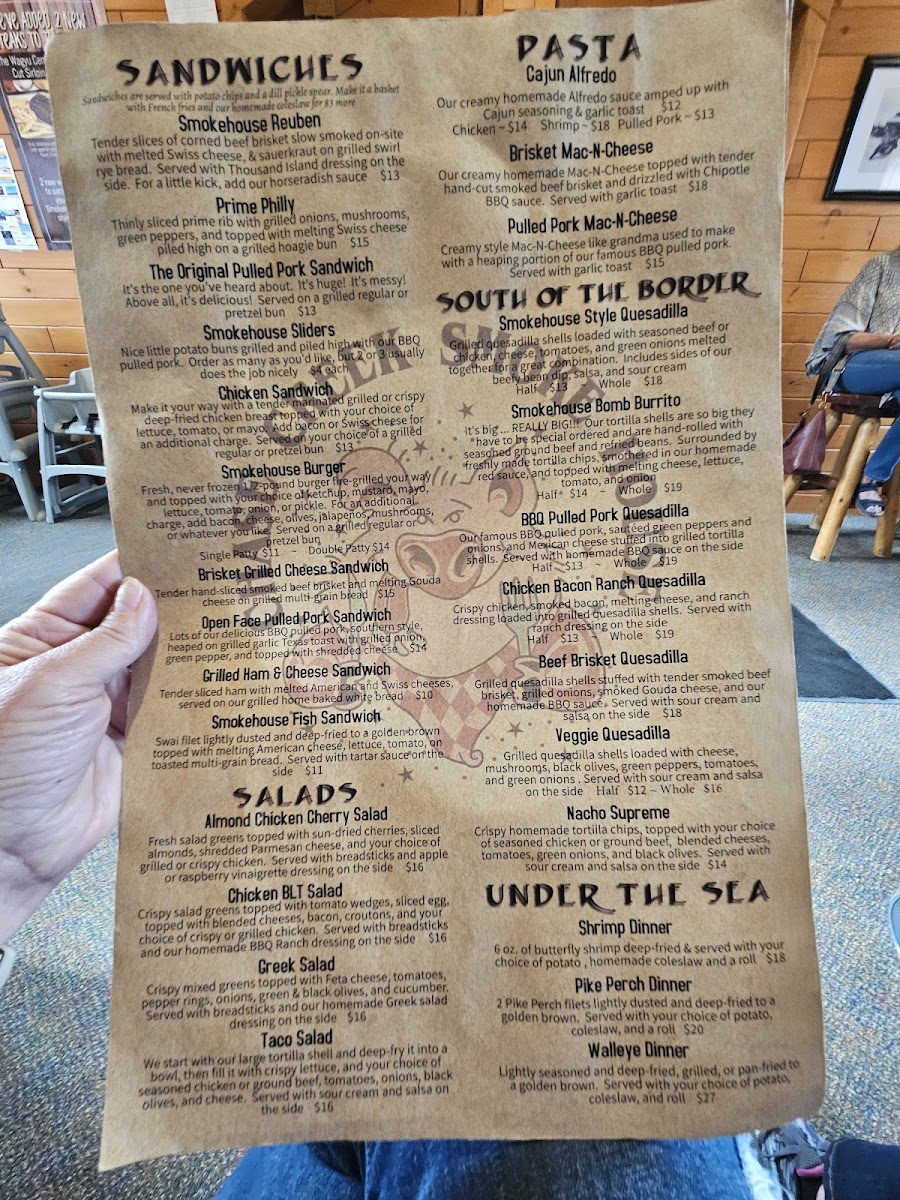 WE'VE ADDED 2 NEW
STEAKS TO
The Wagyu
Cut Sirloin
SANDWICHES
Sandwiches are served with potato chips and a dill pickle spear. Make it a basket
with French fries and our homemade coleslaw for $3 more
Smokehouse Reuben
Tender slices of corned beef brisket slow smoked on-site
with melted Swiss cheese, & sauerkraut on grilled swirl
rye bread. Served with Thousand Island dressing on the
side. For a little kick, add our horseradish sauce $13
Prime Philly
Thinly sliced prime rib with grilled onions, mushrooms,
green peppers, and topped with melting Swiss cheese
piled high on a grilled hoagie bun $15
The Original Pulled Pork Sandwich
It's the one you've heard about. It's huge! It's messy!
Above all, it's delicious! Served on a grilled regular or
pretzel bun $13
Smokehouse Sliders
Nice little potato buns grilled and piled high with our BBQ
pulled pork. Order as many as you'd like, but 2 or 3 usually
does the job nicely $4 each
Chicken Sandwich
Make it your way with a tender marinated grilled or crispy
deep-fried chicken breast topped with your choice of
lettuce, tomato, or mayo. Add bacon or Swiss cheese for
an additional charge. Served on your choice of a grilled
regular or pretzel bun $13
Smokehouse Burger
Fresh, never frozen 1/2-pound burger fire-grilled your way
and topped with your choice of ketchup, mustard, mayo,
lettuce, tomato, onion, or pickle. For an additional
charge, add bacon, cheese, olives, jalapenos, mushrooms,
or whatever you like. Served on a grilled regular or
pretzel bun
Single Patty $11 ~ Double Patty $14
Brisket Grilled Cheese Sandwich
Tender hand-sliced smoked beef brisket and melting Gouda
cheese on grilled multi-grain bread $15
Open Face Pulled Pork Sandwich
Lots of our delicious BBQ pulled pork, southern style,
heaped on grilled garlic Texas toast with grilled onion,
green pepper, and topped with shredded cheese $14
Grilled Ham & Cheese Sandwich
Tender sliced ham with melted American and Swiss cheeses,
served on our grilled home baked white bread $10
Smokehouse Fish Sandwich
Swai filet lightly dusted and deep-fried to a golden brown
topped with melting American cheese, lettuce, tomato, on
toasted multi-grain bread. Served with tartar sauce on the
side $11
SALADS
Almond Chicken Cherry Salad
Fresh salad greens topped with sun-dried cherries, sliced
almonds, shredded Parmesan cheese, and your choice of
grilled or crispy chicken. Served with breadsticks and apple
or raspberry vinaigrette dressing on the side $16
Chicken BLT Salad
Crispy salad greens topped with tomato wedges, sliced egg,
topped with blended cheeses, bacon, croutons, and your
choice of crispy or grilled chicken. Served with breadsticks
and our homemade BBQ Ranch dressing on the side $16
Greek Salad
Crispy mixed greens topped with Feta cheese, tomatoes,
pepper rings, onions, green & black olives, and cucumber.
Served with breadsticks and our homemade Greek salad
dressing on the side $16
Taco Salad
We start with our large tortilla shell and deep-fry it into a
bowl, then fill it with crispy lettuce, and your choice of
seasoned chicken or ground beef, tomatoes, onions, black
olives, and cheese. Served with sour cream and salsa on
the side $16
PASTA
Cajun Alfredo
Our creamy homemade Alfredo sauce amped up with
Cajun seasoning & garlic toast $12
Chicken ~ $14 Shrimp ~ $18 Pulled Pork ~ $13
Brisket Mac-N-Cheese
Our creamy homemade Mac-N-Cheese topped with tender
hand-cut smoked beef brisket and drizzled with Chipotle
BBQ sauce. Served with garlic toast $18
Pulled Pork Mac-N-Cheese
Creamy style Mac-N-Cheese like grandma used to make
with a heaping portion of our famous BBQ pulled pork.
Served with garlic toast $15
SOUTH OF THE BORDER
Smokehouse Style Quesadilla
Grilled quesadilla shells loaded with seasoned beef or
chicken, cheese, tomatoes, and green onions melted
together for a great combination. Includes sides of our
beefy bean dip, salsa, and sour cream
Half $13 Whole $18
Smokehouse Bomb Burrito
It's big ... REALLY BIG!!! Our tortilla shells are so big they
have to be special ordered and are hand-rolled with
seasoned ground beef and refried beans. Surrounded by
freshly made tortilla chips, smothered in our homemade
red sauce, and topped with melting cheese, lettuce,
tomato, and onion
Half $14 Whole $19
BBQ Pulled Pork Quesadilla
Our famous BBQ pulled pork, sautéed green peppers and
onions, and Mexican cheese stuffed into grilled tortilla
shells. Served with homemade BBQ sauce on the side
Half $13 ~ Whole $19
Chicken Bacon Ranch Quesadilla
Crispy chicken, smoked bacon, melting cheese, and ranch
dressing loaded into grilled quesadilla shells. Served with
ranch dressing on the side
Half $13 ~ Whole $19
Beef Brisket Quesadilla
Grilled quesadilla shells stuffed with tender smoked beef
brisket, grilled onions, smoked Gouda cheese, and our
homemade BBQ sauce. Served with sour cream and
salsa on the side $18
Veggie Quesadilla
Grilled quesadilla shells loaded with cheese,
mushrooms, black olives, green peppers, tomatoes,
and green onions . Served with sour cream and salsa
on the side Half $12 ~ Whole $16
Nacho Supreme
Crispy homemade tortilla chips, topped with your choice
of seasoned chicken or ground beef, blended cheeses,
tomatoes, green onions, and black olives. Served with
sour cream and salsa on the side $14
UNDER THE SEA
Shrimp Dinner
6 oz. of butterfly shrimp deep-fried & served with your
choice of potato , homemade coleslaw and a roll $18
Pike Perch Dinner
2 Pike Perch filets lightly dusted and deep-fried to a
golden brown. Served with your choice of potato,
coleslaw, and a roll $20
Walleye Dinner
Lightly seasoned and deep-fried, grilled, or pan-fried to
a golden brown. Served with your choice of potato,
coleslaw, and roll $27
CREEK SMOKE